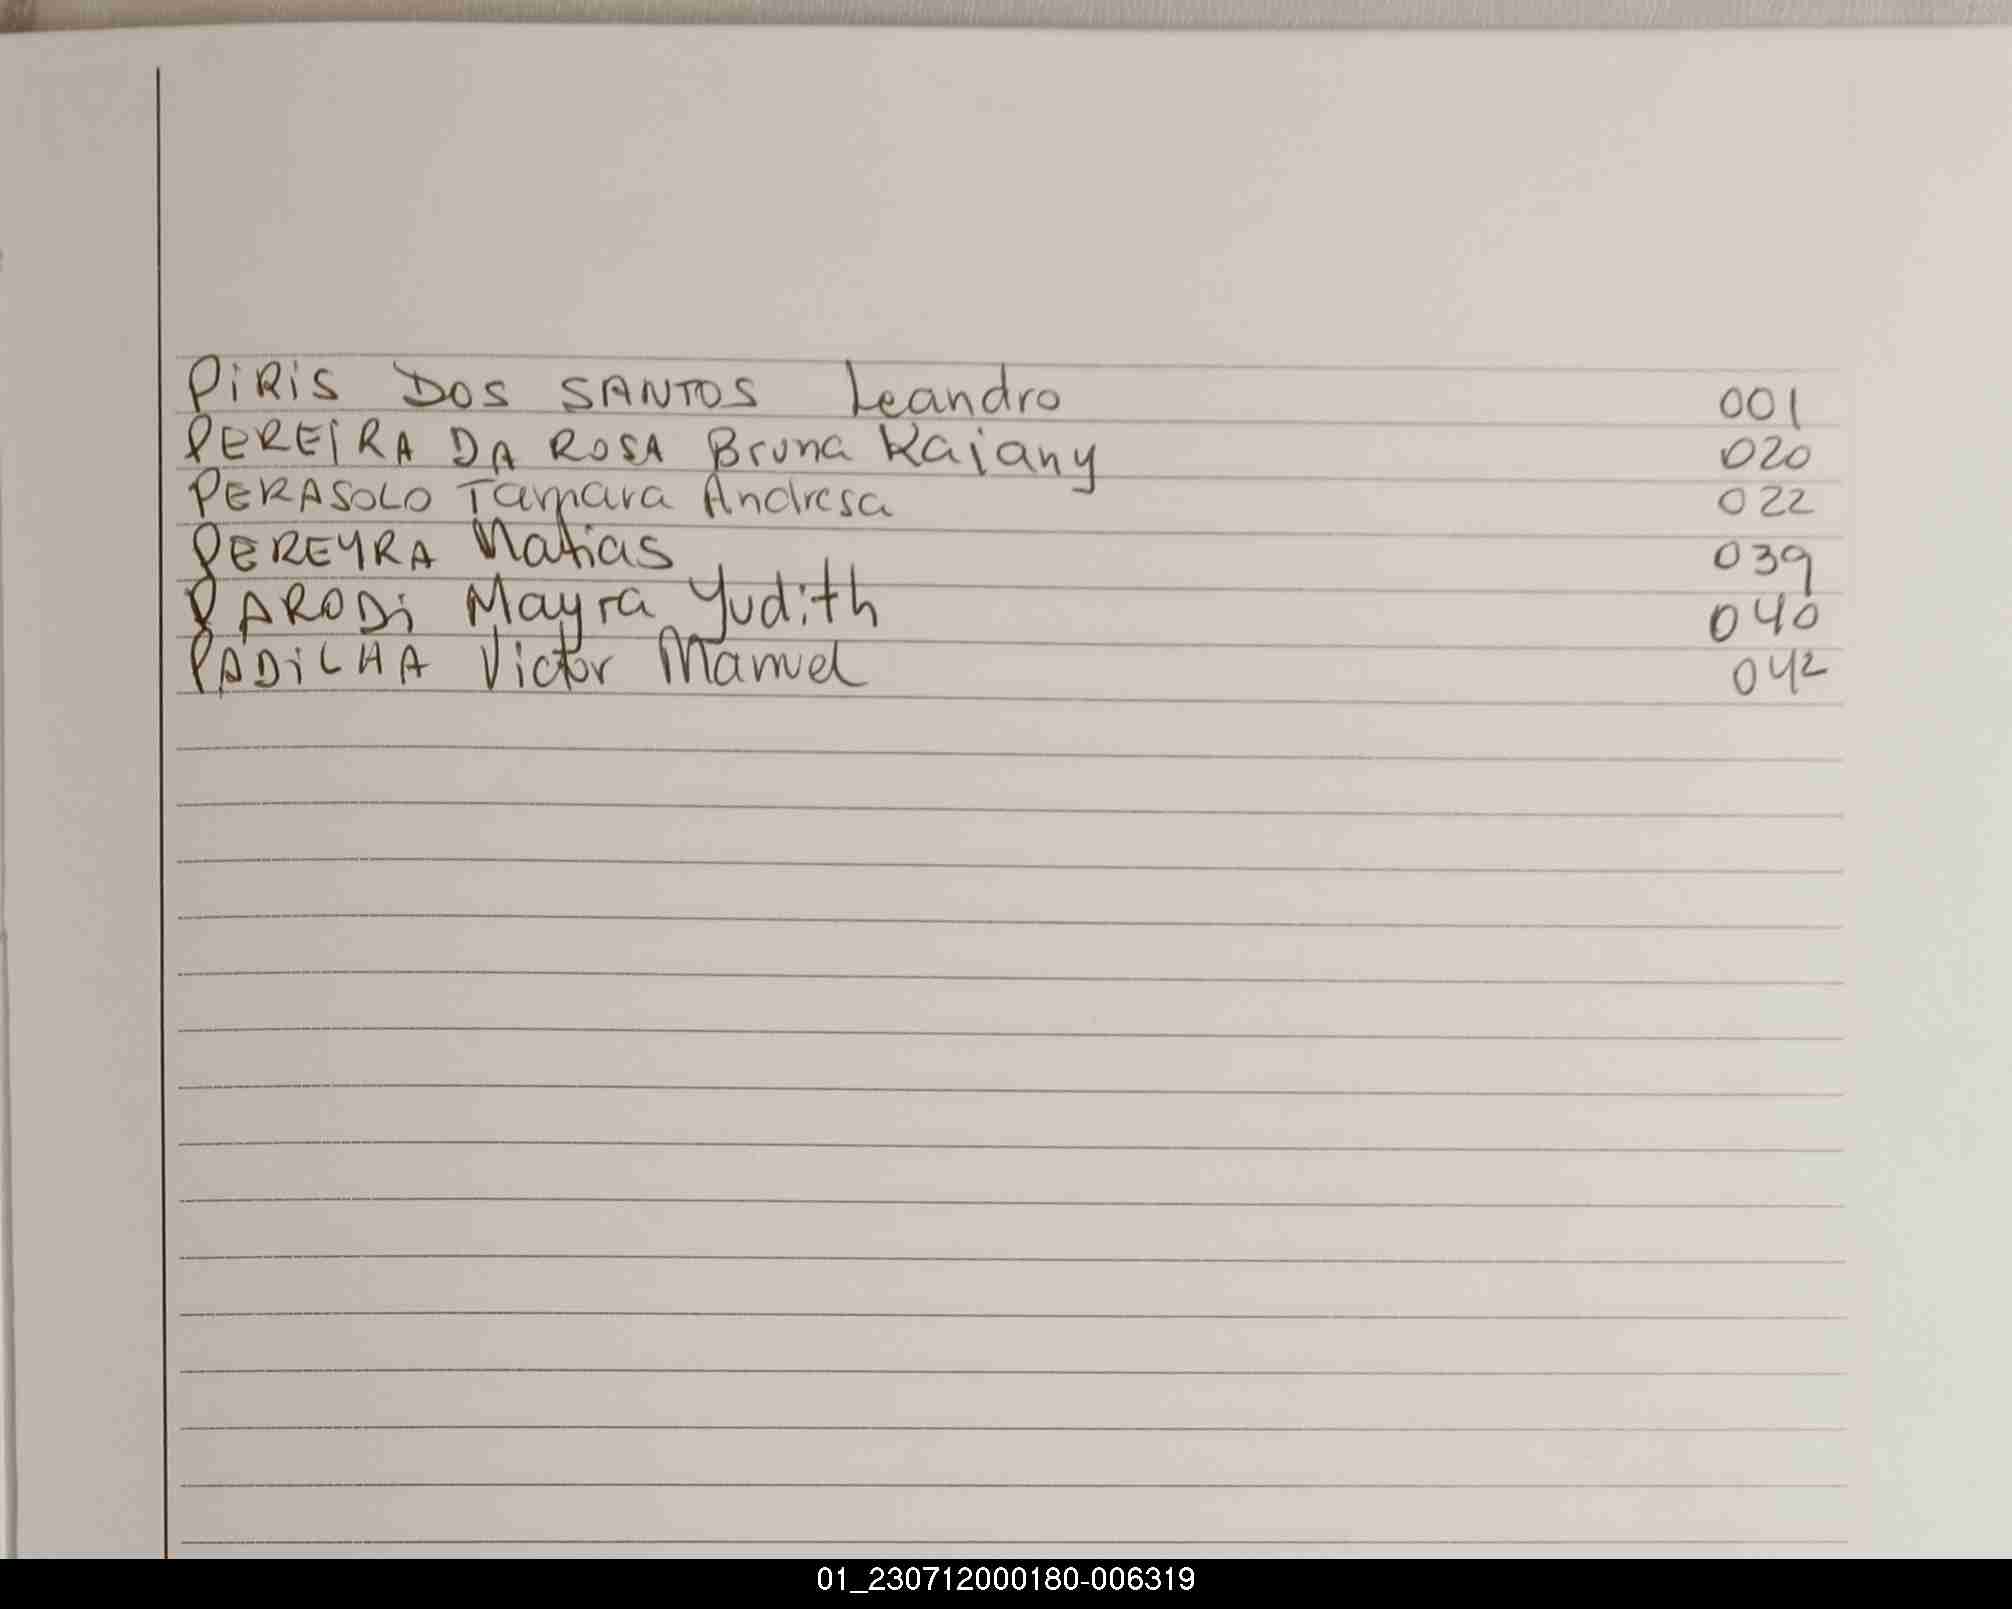 PiRiS DOS SANTOS Leandro 001
PEREIRA DA ROSA Bruna Kaiany 020
PERASOLO Tamara Andresa 022
PEREYRA Matias 039
PARODi Mayra Yudith 040
PADiLHA Victor Manuel 042
01_230712000180-006319